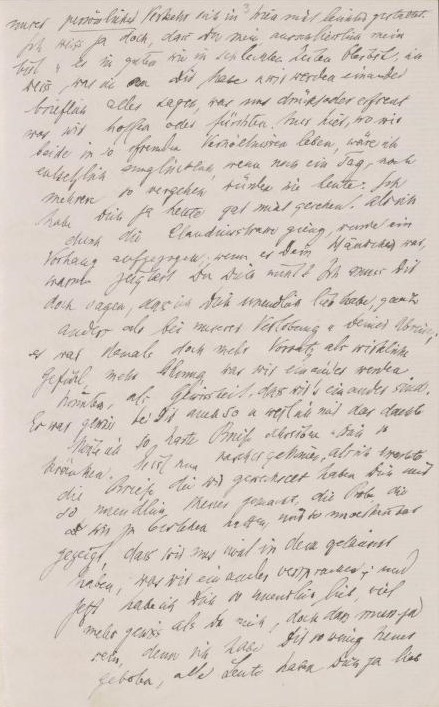 unser persönlicher Verkehr sich in Wien nicht leichter gestaltet.
Ich weiss ja doch, dass Du mein ausschliesslich mein
bist u. Es in guten wie in schlechten Zeiten bleibst, ich
weiss, was ich an Dir habe u wir werden einander
brieflich alles sagen, was uns drückt oder erfreut
was wir hoffen oder fürchten. Nur hier, wo wir
beide in so fremden Verhältnissen leben, wäre ich
entsetzlich unglücklich, wenn noch ein Tag, noch
mehrere so vergehen würden wie heute. Ich
habe Dich ja heute gar nicht gesehen. Als ich
durch die gieng, wurde ein
Vorhang aufgezogen; wenn es Dein Händchen war,
warum zeigtest Du Dich nicht? Ich muss Dir
doch sagen, dass ich Dich unendlich lieb habe, ganz
anders als bei unserer Verlobung u Deiner Abreise;
es war damals doch mehr Vorsatz als wirkliches
Gefühl, mehr Ahnung was wir einander werden
könnten, als Gewissheit, dass wir's einander sind.
Es war gewiss bei Dir auch so u weil ich mir das dachte
habe ich so harte Briefe schreiben u Dich so
kränken. Jetzt nun rascher gekommen, als ich erwartete
die Briefe die wir gewechselt haben Dich mir
so unendlich theuer gemacht, die Probe die
wir ja bestehen hatten, und so
gezeigt, dass wir uns nicht in dem getäuscht
haben, was wir einander versprachen; und
jetzt habe ich Dich so unendlich lieb, viel
mehr gewiss als Du mich, doch das muss ja
sein, denn ich habe Dir so wenig
geboten, alle Leute haben Dich ja lieb